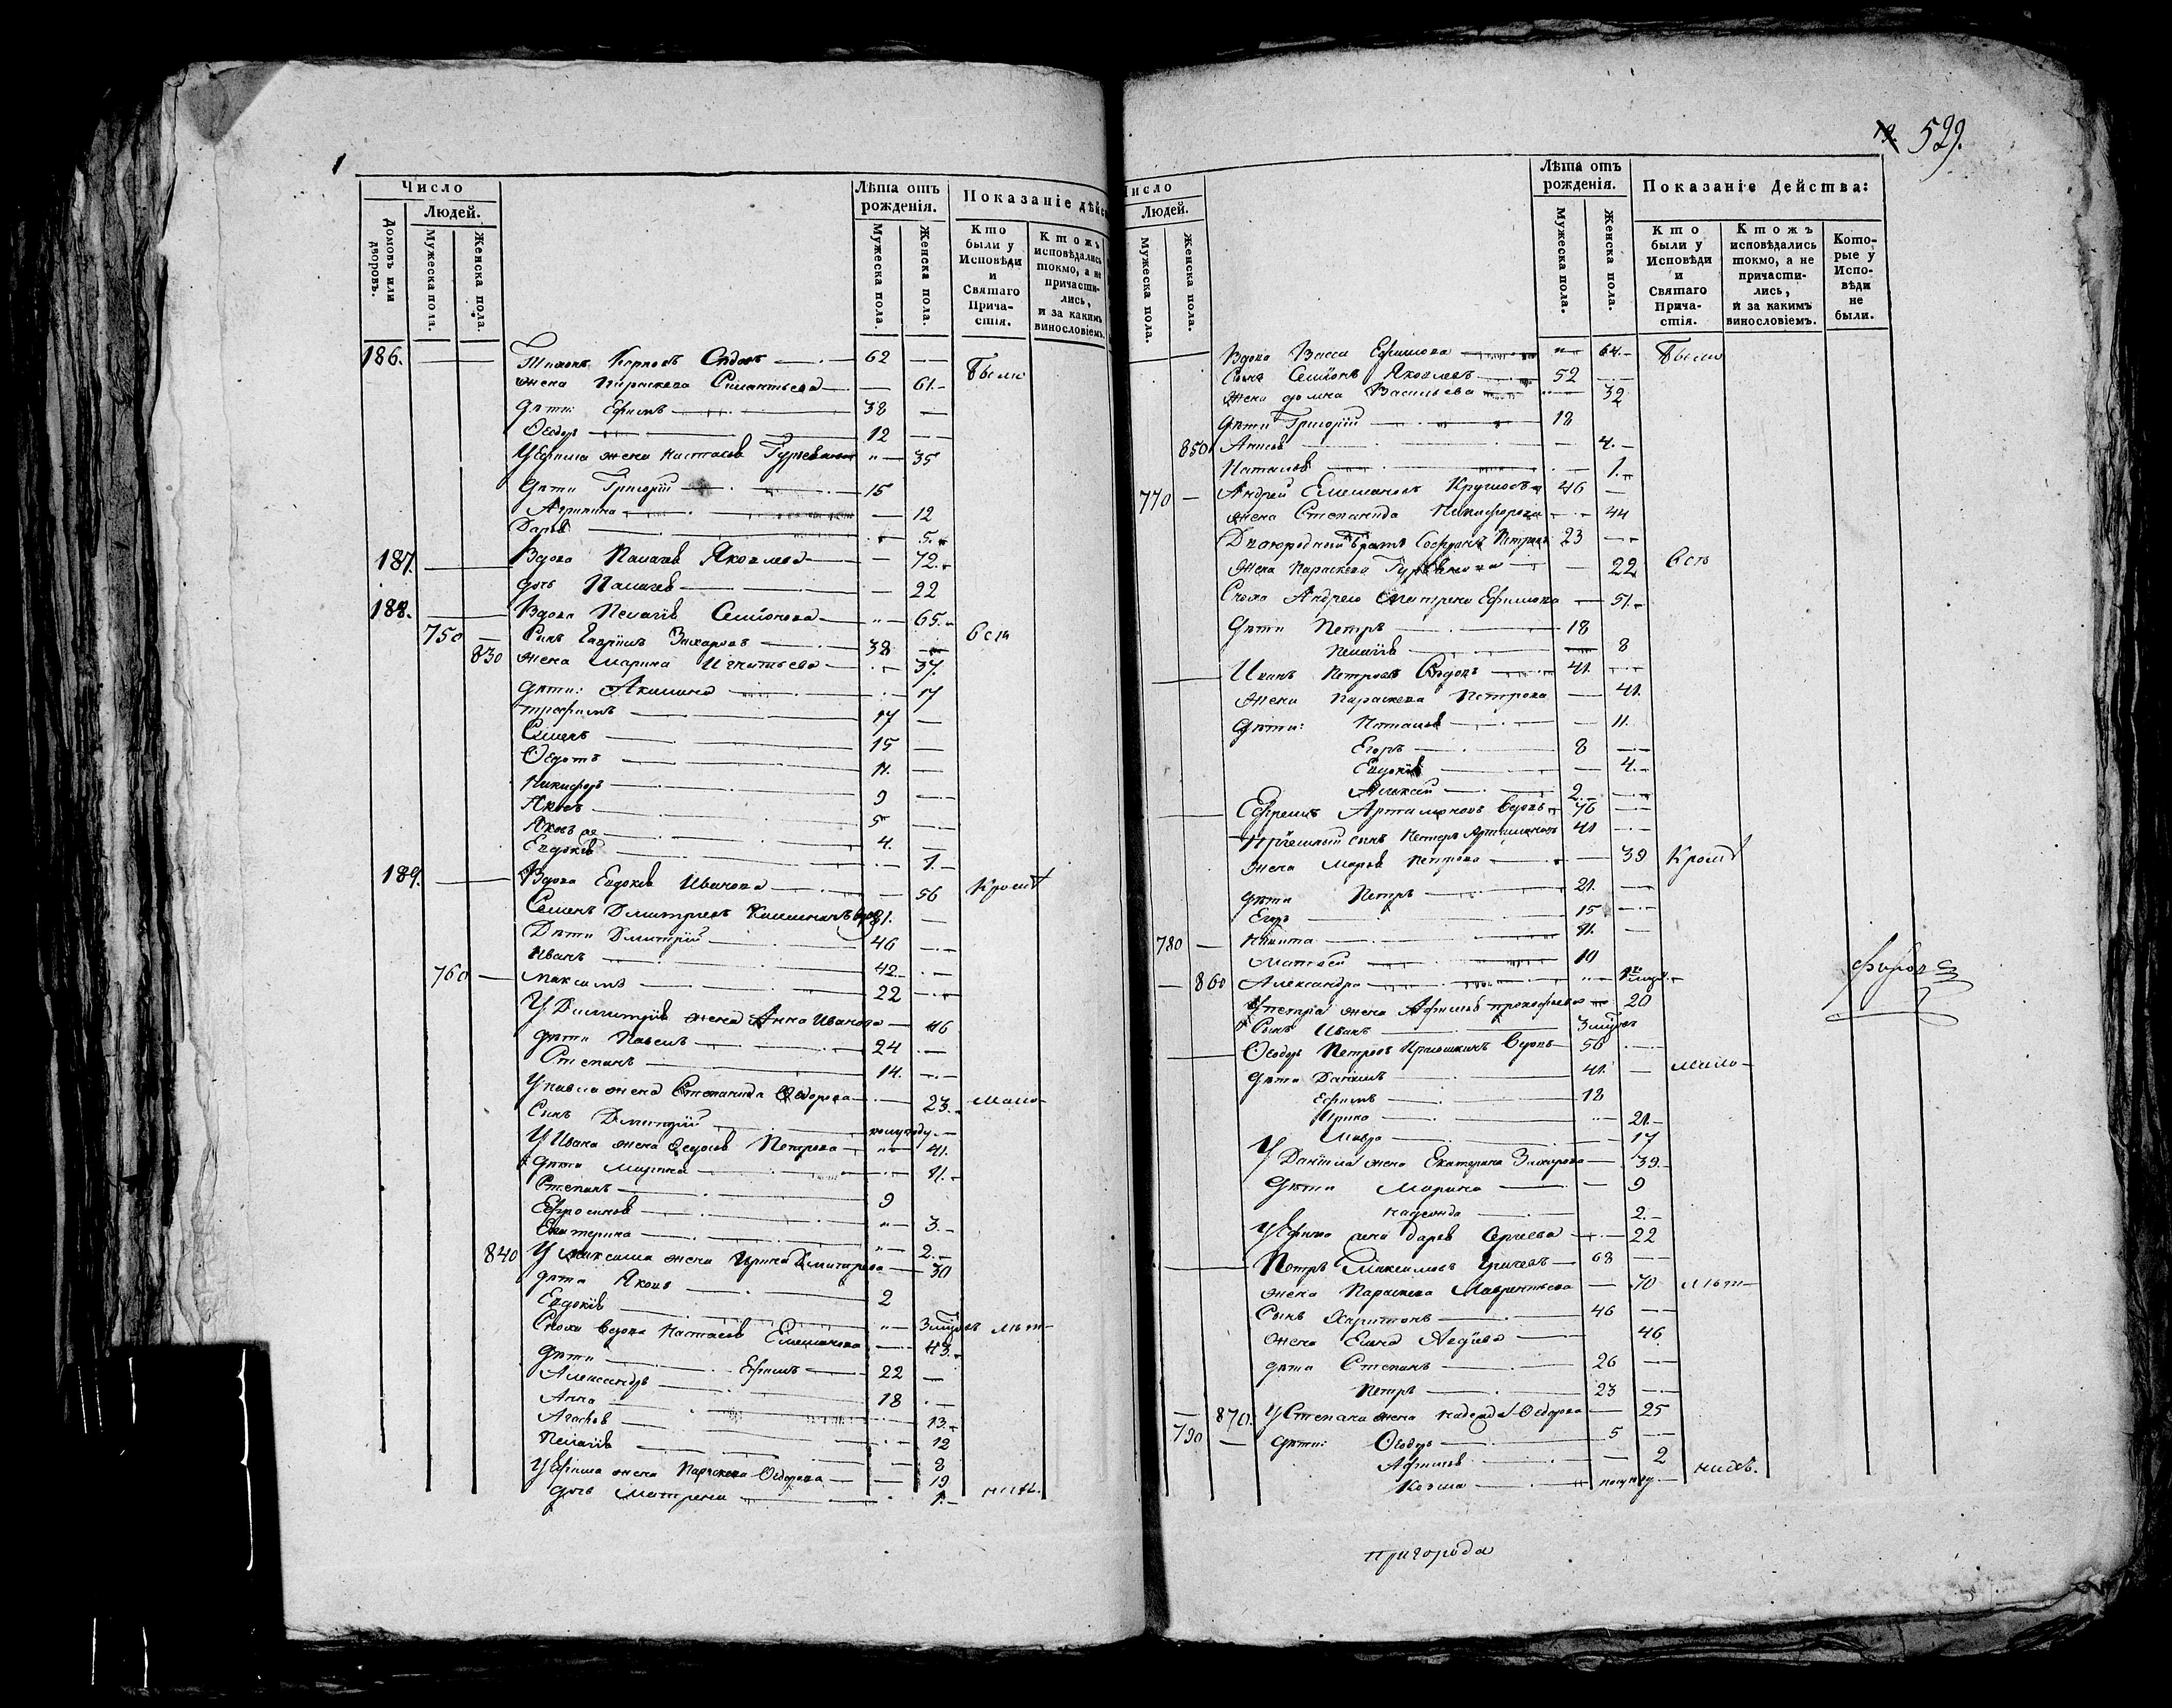 1
Число
Людей.
Домовъ или дворовъ.
Мужеска пола.
Женска пола.
Лѣта отъ рожденія.
Мужеска пола.
Женска пола.
Показаніе дѣйс
Кто были у Исповѣди и Святаго Причастія.
Ктожъ исповѣдались токмо, а не причастились, и за какимъ винословіемъ.
186. Тихонъ Карповъ 62 были
жена Параскева Силантьева 61.
дѣти: Ефимъ 38
Ѳеодоръ 12
У Ефима жена Настасья 35
дѣти Григорій 15
Агрипина 12
Дарья 5.
187. Вдова Палагея Яковлева 72.
дочь Палагея 22
188. Вдова Пелагія Семіонова 65. всѣ
750 Сынъ Гавріилъ Захаровъ 38
830 жена Марина Игнатьева 37.
дѣти: Акилина 17
трофимъ 17
Семенъ 15
Ѳедотъ 11.
Никифоръ 9
Яковъ 5
Яковъ же 4.
Евдокія 1.
189. Вдова Евдокія Иванова 56 Кромѣ
Семенъ Дмитріевъ вдовъ 81.
Дѣти Дмитрій 46
Иванъ 42.
760 Максимъ 22
У Димитрія жена Анна Иванова 46
дѣти Павелъ 24
Степанъ 14.
У павла жена Степанида Ѳедорова 23. мало-
Сынъ Дмитрій полугоду
У Ивана жена Ѳедосья Петрова 41.
дѣти Марина 11.
Степанъ 9
Ефросинья 3.
Екатерина 2.
840 У максима жена Ирина Дмитрева 30
дѣти Яковъ 2
Евдокія 3 лѣт-
Сноха вдова Настасья Емельянова 43.
дѣти Ефимъ 22
Александръ 18
Анна 13.
Агафья 12
Пелагія 8
У Ефима жена Параскева Ѳедорова 19
дочь Матрена 1. нихъ.
19. 529.
Число
Людей.
Мужеска пола.
Женска пола.
Лѣта отъ рожденія.
Мужеска пола.
Женска пола.
Показаніе Дейсшва:
Кто были у Исповѣди и Святаго Причастія.
Ктожъ исповѣдались токмо, а не причастились, и за какимъ винословіемъ.
Которые у Исповѣди не были.
Вдова Васса Ефимова 64. были
Сынъ Семіонъ Яковлевъ 52
жена домна Васильева 32
дѣти Григорій 18
850 4.
Наталья 1.
770 Андрей Емельяновъ 46
жена Степанида Никифорова 44
Двоюродный братъ Софронъ Петровъ 23
жена Параскева 22 всѣ
Сноха Андрею Матрена Ефимова 51.
дѣти Петръ 18
Пелагія 8
Иванъ Петровъ 41.
жена Параскева Петрова 41.
дѣти: Наталья 11.
Егоръ 8
Евдокія 4.
Алексей 2.
Ефремъ Артамоновъ вдовъ 76
Пріемный сынъ Петеръ Артамоновъ 41
жена Марья Петрова 39 Кромѣ
дѣти Петръ 21.
Егоръ 15
780 Никита 11.
Матвей 10
860 Александра
У петра жена Афимья прокофьева 20
Сынъ Иванъ 3
Ѳеодоръ Петровъ вдовъ 56
дѣти Даніилъ 41. мало-
Ефимъ 18
Ирина 21.
Мавра 17
У Даніила жена Екатерина Захарова 39.
дѣти Марина 9
надежда 2.
У Ефима жена дарья Сергеева 22
Петръ Максимовъ 68
жена Параскева Лаврентьева 70 лѣт-
Сынъ Харитонъ 46
жена Елена 46
дѣти Степанъ 26
Петръ 23
870. У Степана жена надежда Ѳедорова 25
790 дѣти: Ѳеодоръ 5
Афимья 2
Козма полугоду нихъ.
пригорода